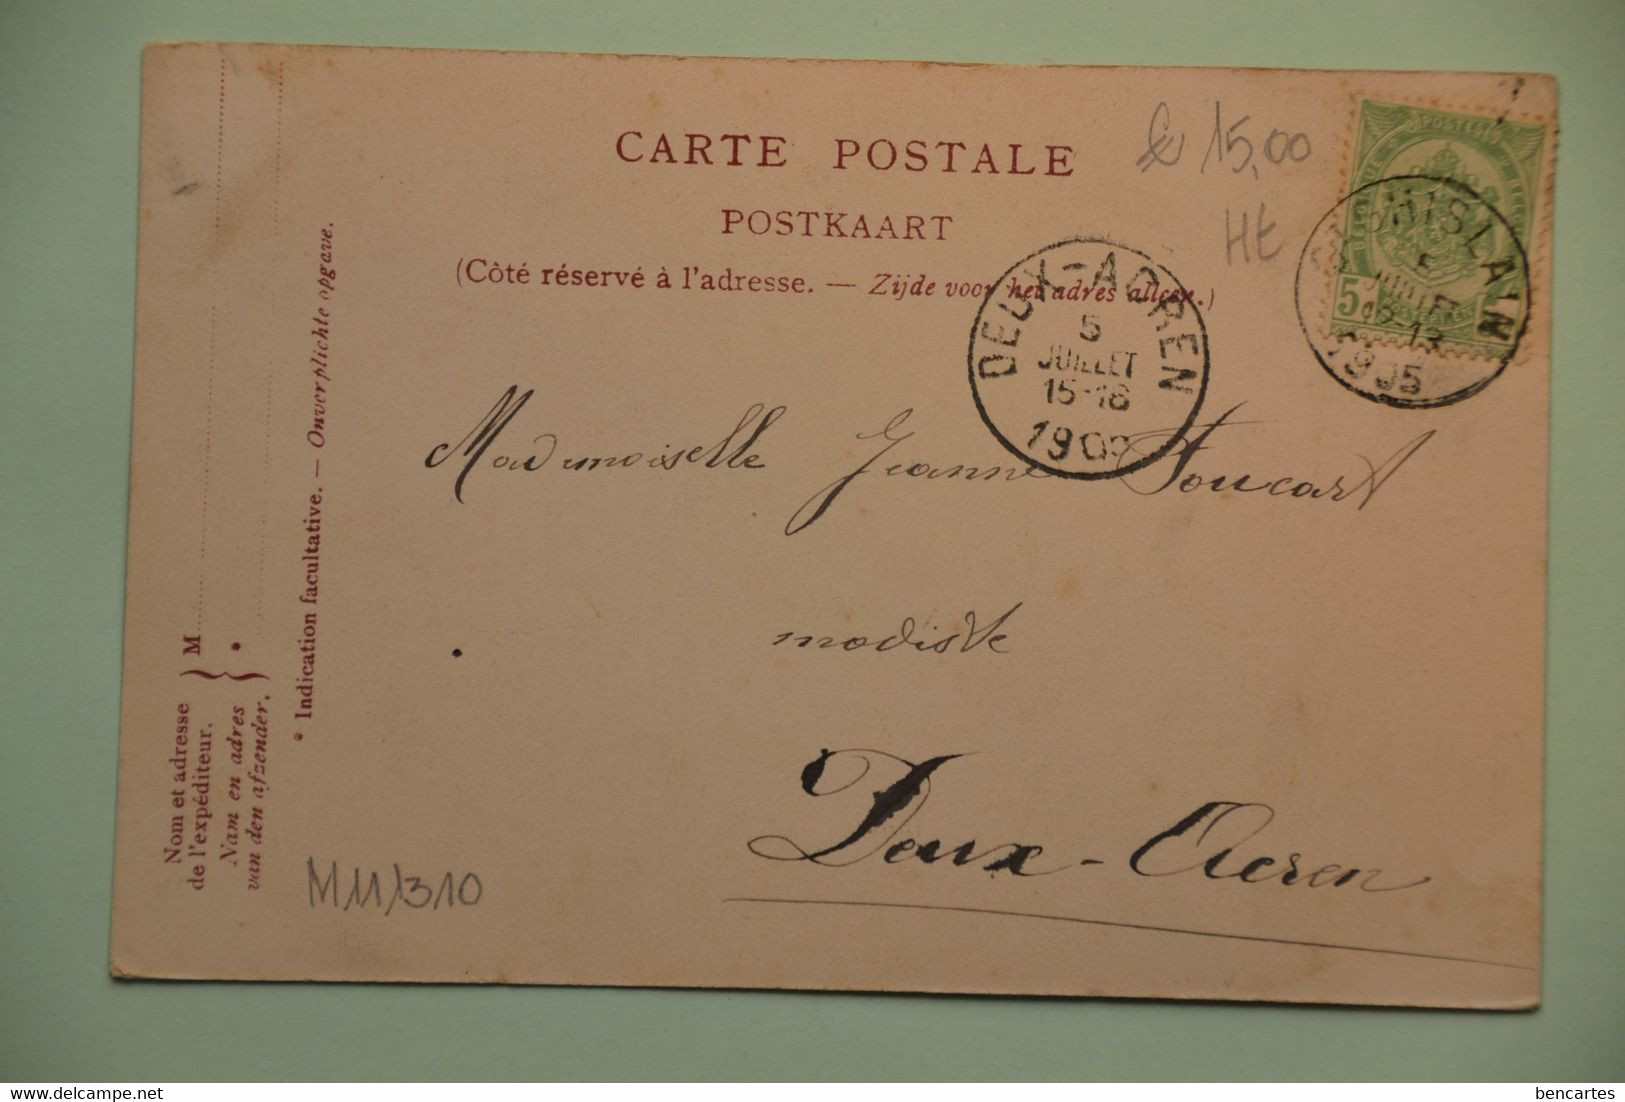 CARTE POSTALE
POSTKAART
(Côté réservé à l'adresse. — Zijde voor het adres alleen.)
15,00
Ht
POSTES
BELGIQUE
5
GHISLAIN
5
JUILLET
12-13
1905
DEUX-ACREN
5
JUILLET
15-16
190
Mademoiselle Jeanne Foucart
modiste
Deux-Acren
M11/310
Nom et adresse
de l'expéditeur.
M
Nam en adres
van den afzender.
*
* Indication facultative. — Onverplichte opgave.
https://www.delcampe.net
bencartes